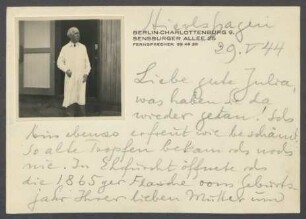 Niershagen
BERLIN-CHARLOTTENBURG 9,
SENSBURGER ALLEE 26
FERNSPRECHER: 99 49 26
29. V 44
Liebe gute Julia,
was haben Sie da
wieder getan! Ich
bin ebenso erfreut wie beschämt
so alte Tropfen bekam ich noch
nie. In Ehrfurcht öffnete ich
die 1865ger Flasche vom Geburts-
jahr Ihrer lieben Mutter und